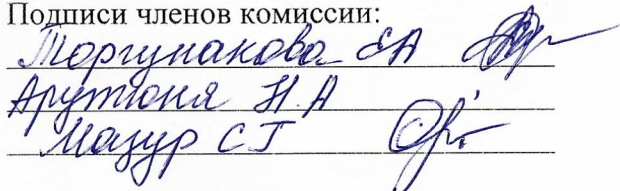 Подписи членов комиссии:
Торгунакова ЕА
Арутюня Н.А
Мазур СГ